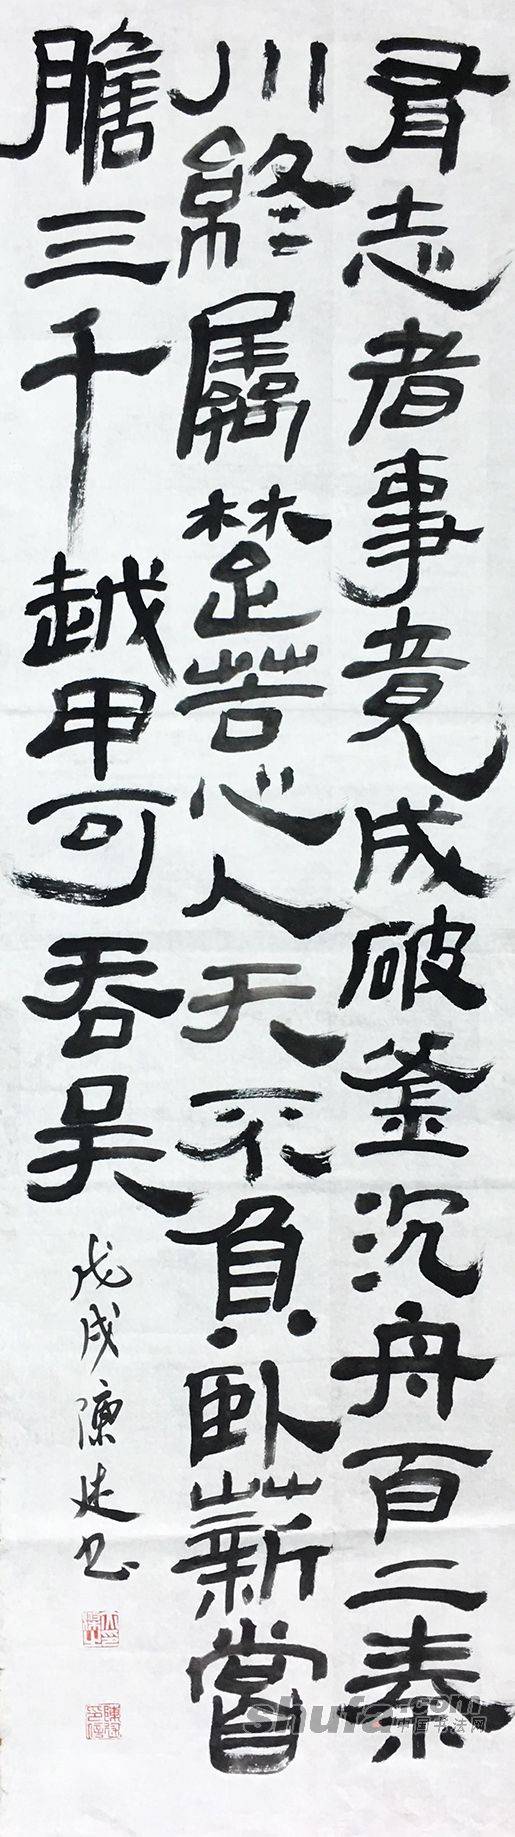 有志者事竟成破釜沉舟百二秦
川終屬楚苦心人天不負臥薪嘗
膽三千越甲可吞吳
戊戌陳书
shufa.com
中国书法网